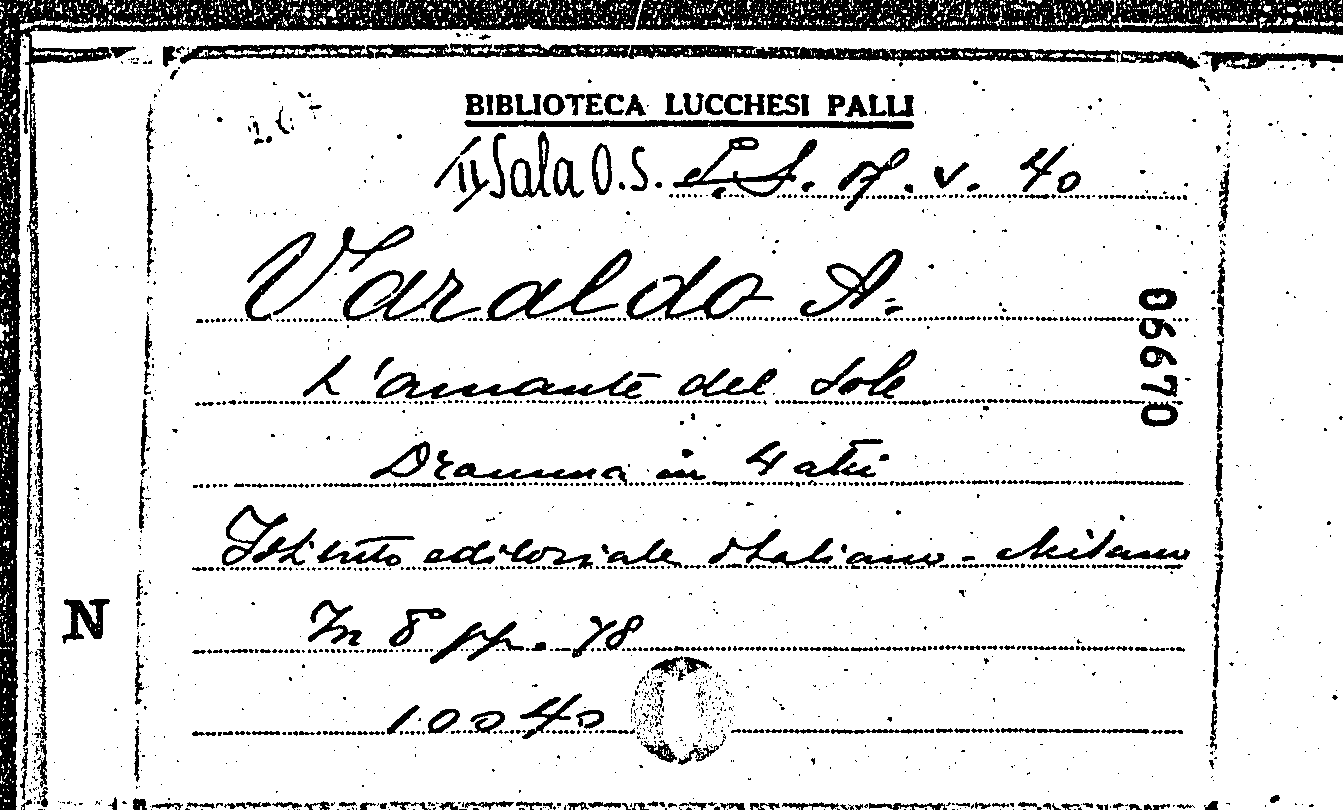 BIBLIOTECA LUCCHESI PALLI
II Sala O.S. L.S. 17. V. 40
Varaldo A.
L'amante del sole
Dramma in 4 atti
Istituto editoriale italiano - Milano
In 8 pp. 78
10040
06670
N